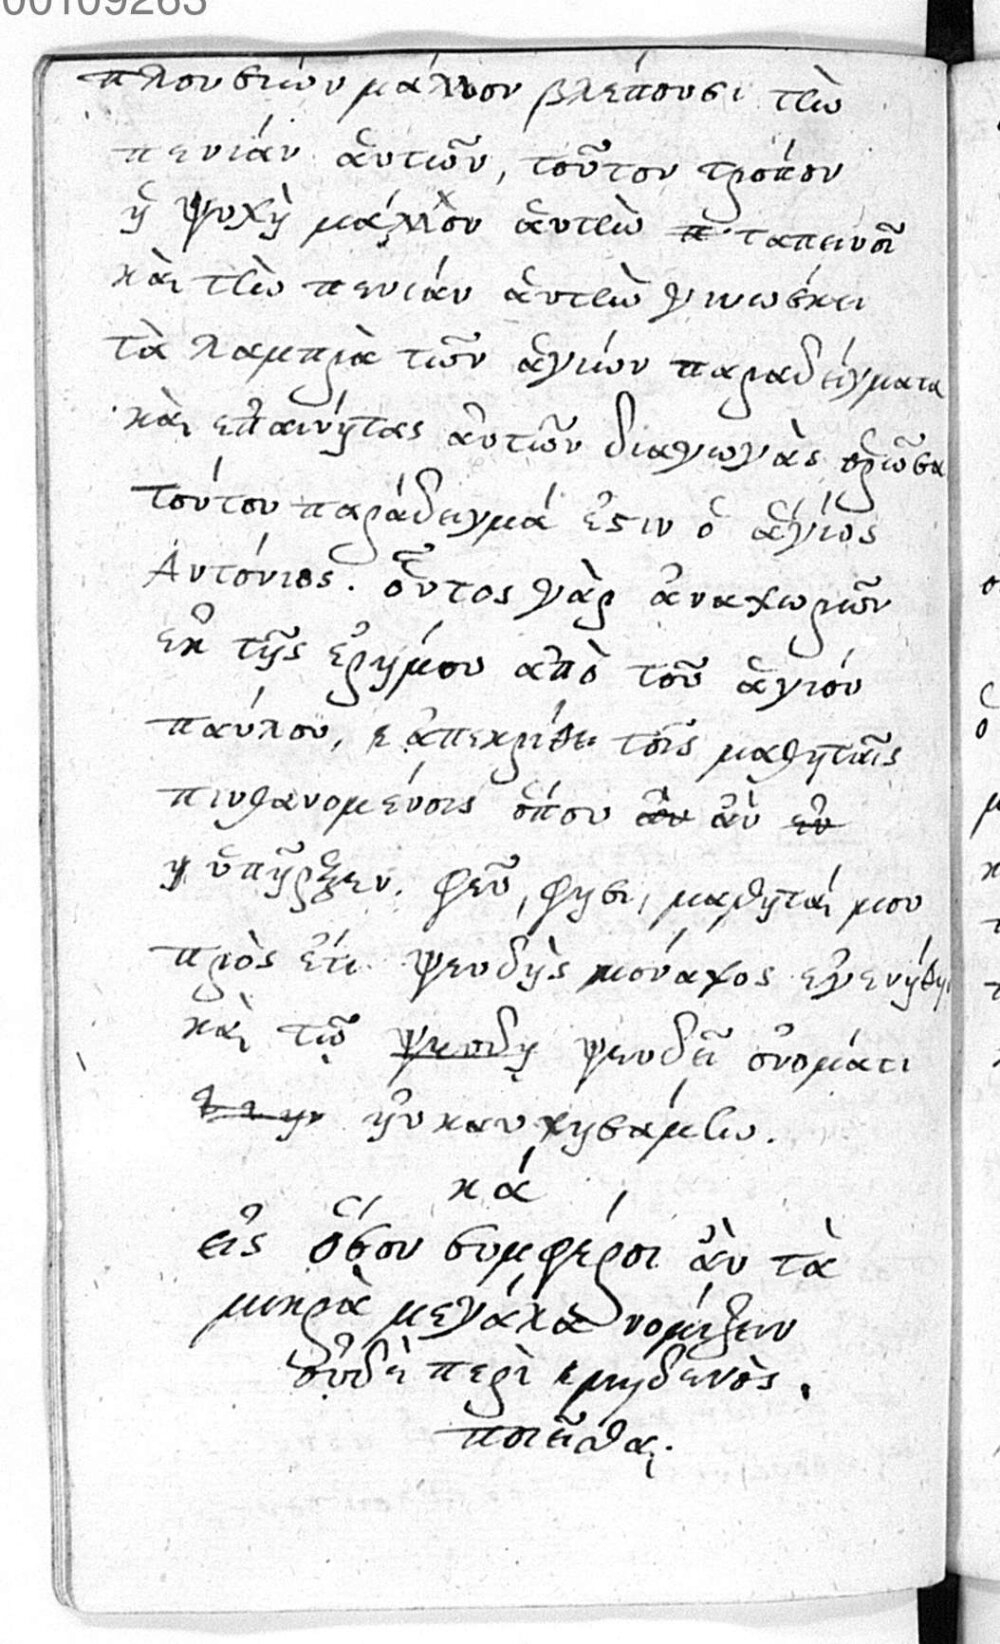 00109263
πλουσιών μάλλον βλέπουσι τὼ
πενίαν ἀυτιῶν, τοῦτον τρόπον
ἡ ψυχὴ μάλλον ἀυτὼ ταπεινοῖ
κὰι τὼ πενίαν ἀυτὼ γινωσκει
τὰ λαμπρὰ τιῶν ἁγιών παραδείγματα
κὰι επαινήτας ἀυτιῶν διαγωγὰς ὁριῶσα
τούτου παράδειγμά ἐστιν ὁ ἅγίος
Αντόνιος. οὗτος γὰρ ἀναχωριῶν
εκ τῆς ἐρήμου απὸ τοῦ ἁγιού
παύλου, ἀπεκρίθε τοῖς μαθηταῖς
πινθανομένοις ὅπου ἀν
ὑπῆρξεν. φεῦ, φησι, μαθητάι μου
πρὸς ἐτι ψευδὴς μόναχος ἐγενήθην
κὰι τῷ ψευδη ψευδεῖ ὀνομάτι
ηὐκαυχησάμω.
κά
εἰς ὅσον συμφέροι ἀν τὰ
μικρὰ μεγάλα νομίζειν
οὐδὲ περὶ μηδενὸς
ποιεῖσθαι.